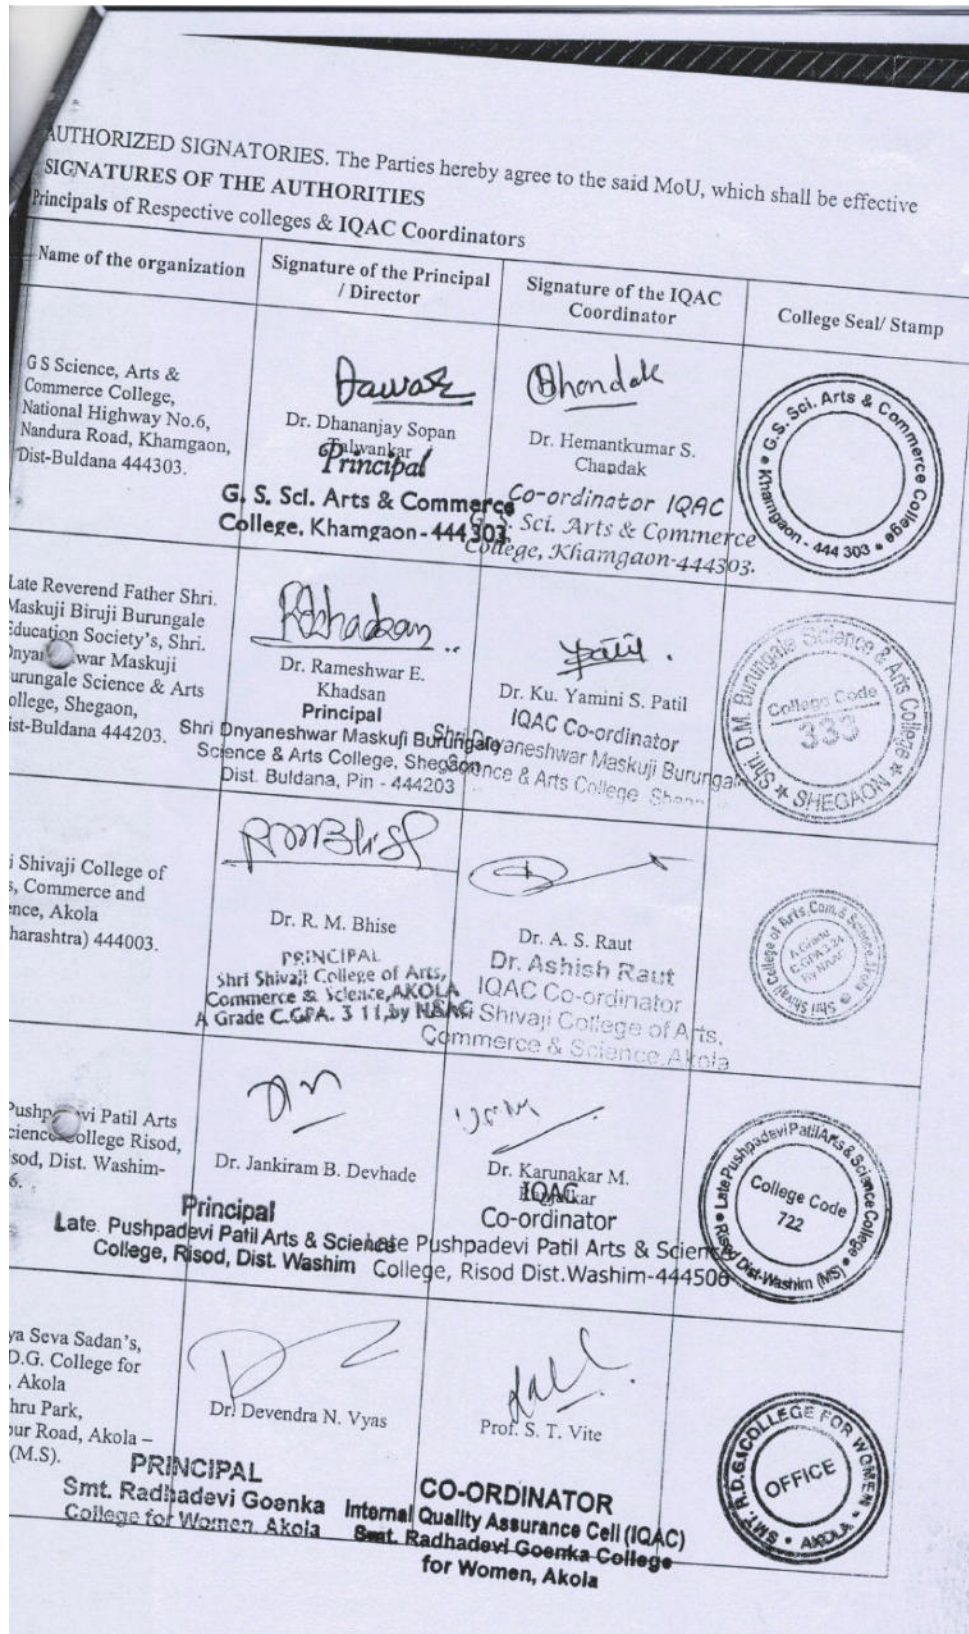 AUTHORIZED SIGNATORIES. The Parties hereby agree to the said MoU, which shall be effective
SIGNATURES OF THE AUTHORITIES
Principals of Respective colleges & IQAC Coordinators
Name of the organization
Signature of the Principal
/ Director
Signature of the IQAC
Coordinator
College Seal/ Stamp
G S Science, Arts &
Commerce College,
National Highway No.6,
Nandura Road, Khamgaon,
Dist-Buldana 444303.
Dr. Dhananjay Sopan
Talwankar
Principal
G. S. Sci. Arts & Commerce
College, Khamgaon - 444 303.
Chandak
Dr. Hemantkumar S.
Chandak
Co-ordinator IQAC
G. S. Sci. Arts & Commerce
College, Khamgaon-444303.
G. S. Sci. Arts & Commerce College
Khamgaon - 444 303
Late Reverend Father Shri.
Maskuji Biruji Burungale
Education Society's, Shri.
war Maskuji
urungale Science & Arts
ollege, Shegaon,
ist-Buldana 444203.
Dr. Rameshwar E.
Khadsan
Principal
Shri Dnyaneshwar Maskuji Burungale
Science & Arts College, Shegaon
Dist. Buldana, Pin - 444203
Patil
Dr. Ku. Yamini S. Patil
IQAC Co-ordinator
Shri Dnyaneshwar Maskuji Burungale
Science & Arts College
Shri. D.M. Burungale Science & Arts College
SHEGAON
College Code
333
i Shivaji College of
s, Commerce and
ence, Akola
harashtra) 444003.
RMBhise
Dr. R. M. Bhise
PRINCIPAL
Shri Shivaji College of Arts,
Commerce & Science, AKOLA
A Grade C.GPA. 3 11,by NAAC
Dr. A. S. Raut
Dr. Ashish Raut
IQAC Co-ordinator
Shivaji College of Arts,
Commerce & Science, Akola
Shri Shivaji College of Arts, Com. & Science, Akola
A Grade
C.GPA 3.24
By NAAC
Pushp vi Patil Arts
cience College Risod,
sod, Dist. Washim-
6.
Dr. Jankiram B. Devhade
Principal
Late. Pushpadevi Patil Arts & Science
College, Risod, Dist. Washim
Dr. Karunakar M.
IQAC
Co-ordinator
Late Pushpadevi Patil Arts & Science
College, Risod Dist.Washim-444506
Late Pushpadevi Patil Arts & Science College
Risod Dist-Washim (MS)
College Code
722
ya Seva Sadan's,
D.G. College for
, Akola
hru Park,
ur Road, Akola –
(M.S).
Dr. Devendra N. Vyas
PRINCIPAL
Smt. Radhadevi Goenka
College for Women, Akola
Prof. S. T. Vite
CO-ORDINATOR
Internal Quality Assurance Cell (IQAC)
Smt. Radhadevi Goenka College
for Women, Akola
SMT. R.D.G. COLLEGE FOR WOMEN
AKOLA
OFFICE